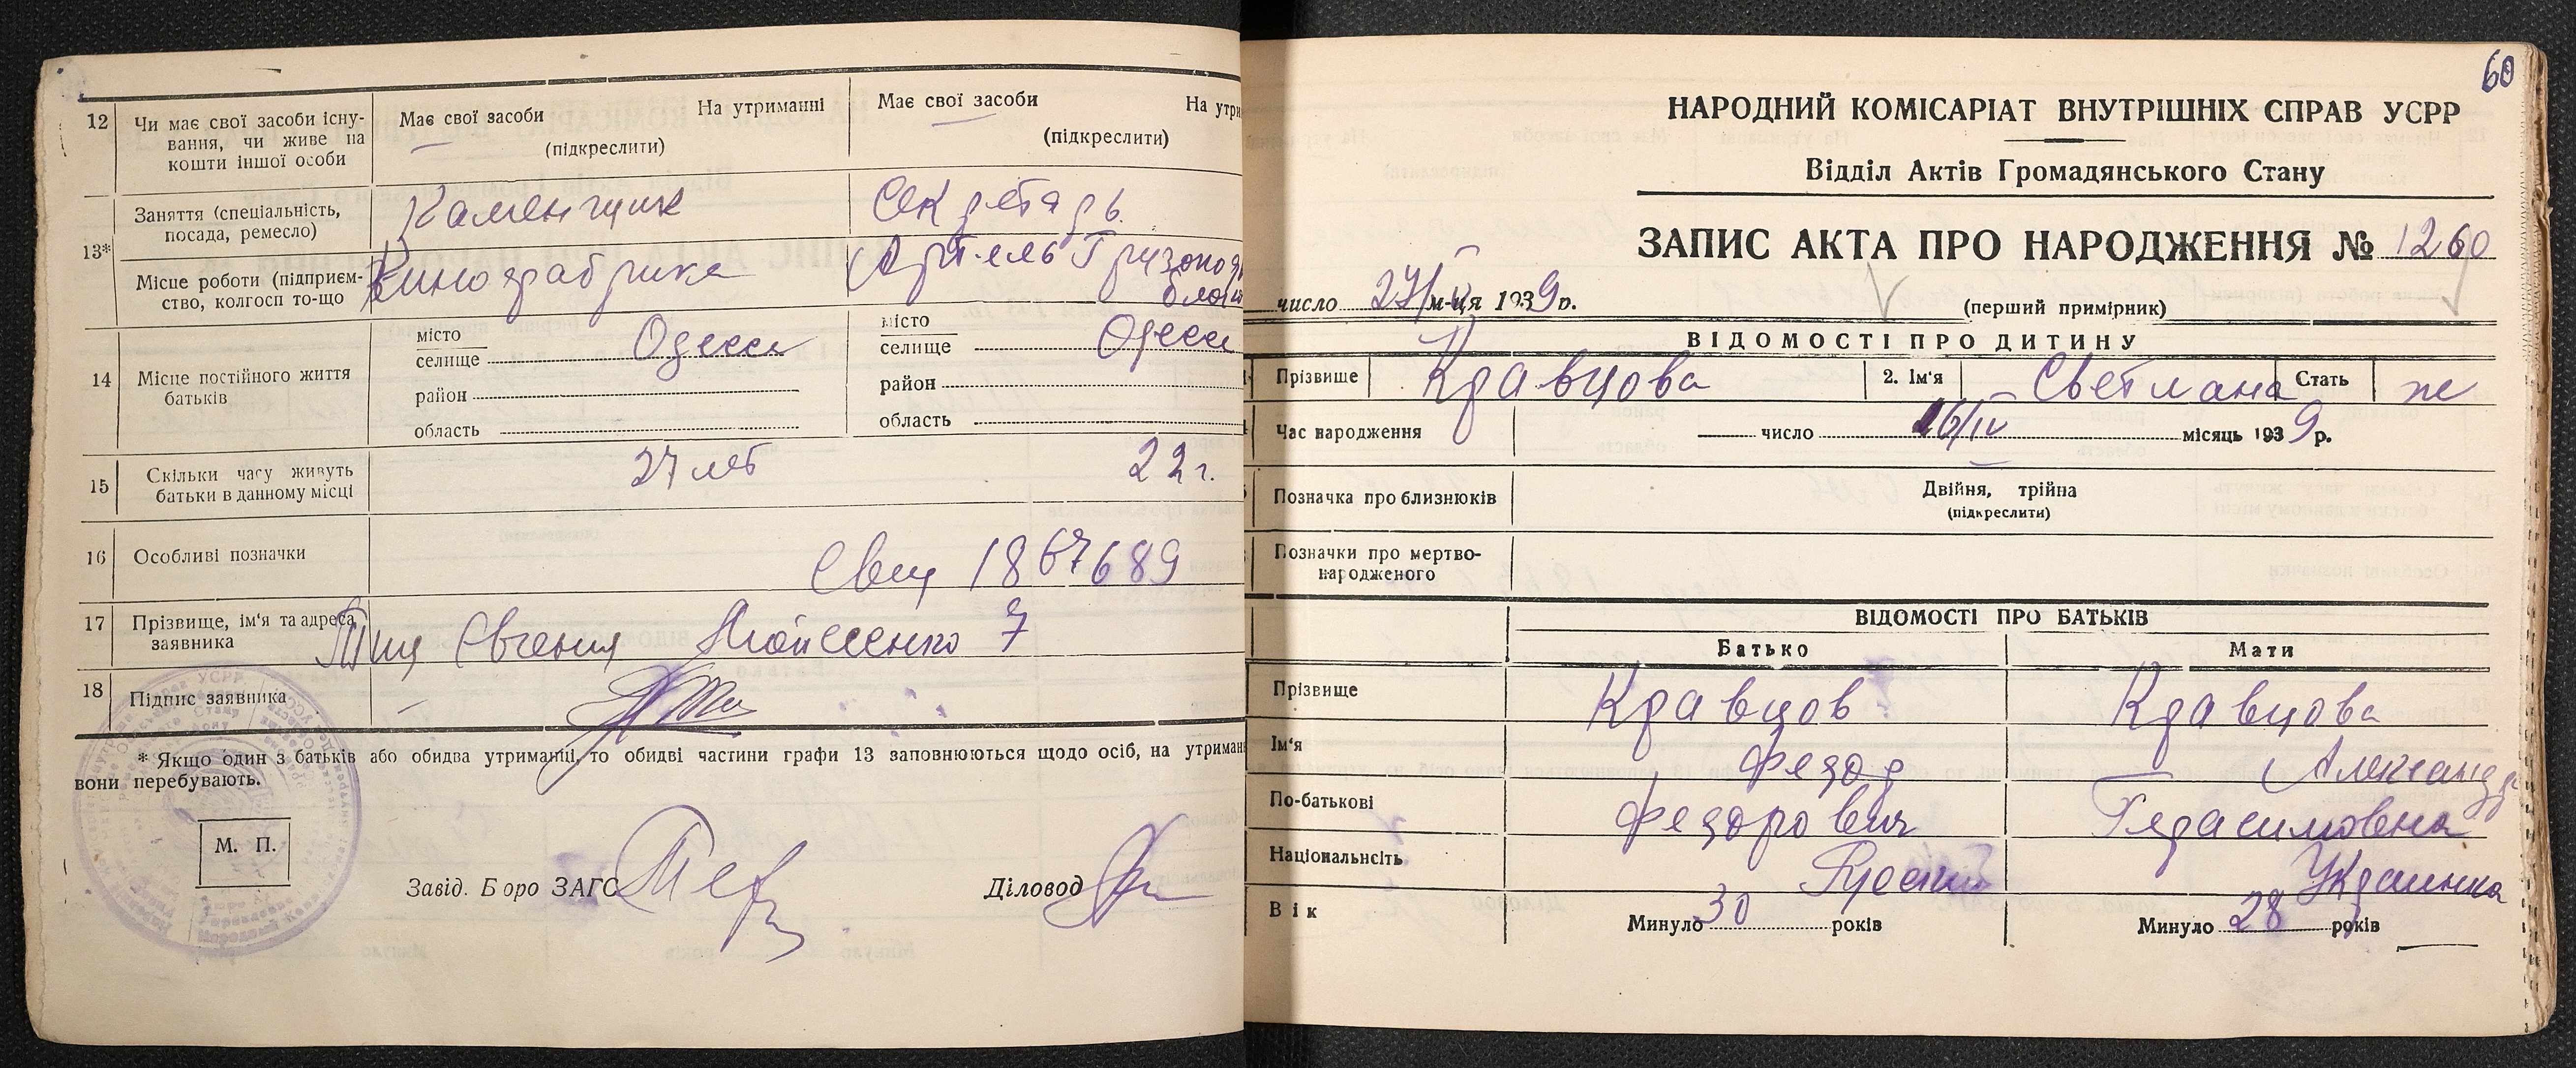 12
Чи має свої засоби існу-
вання, чи живе на
кошти іншої особи
Має свої засоби На утриманні
(підкреслити)
Має свої засоби На утри
(підкреслити)
13*
Заняття (спеціальність,
посада, ремесло)
Каменщик
Секретарь
Місце роботи (підприєм-
ство, колгосп то-що
Кинофабрика
Артель
14
Місце постійного життя
батьків
місто
селище Одесса
район
область
місто
селище Одесса
район
область
15
Скільки часу живуть
батьки в данному місці
27 лет
22 г.
16
Особливі позначки
Свид 1867689
17
Прізвище, ім'я та адреса
заявника
Евгения 7
18
Підпис заявника
* Якщо один з батьків або обидва утриманці, то обидві частини графи 13 заповнюються щодо осіб, на утриман
вони перебувають.
М. П.
Завід. Бюро ЗАГС
Діловод
60
НАРОДНИЙ КОМІСАРІАТ ВНУТРІШНІХ СПРАВ УСРР
Відділ Актів Громадянського Стану
ЗАПИС АКТА ПРО НАРОДЖЕННЯ № 1260
число 27/IV м-ця 1939 р.
(перший примірник)
ВІДОМОСТІ ПРО ДИТИНУ
Прізвище Кравцова 2. Ім'я Светлана Стать ж
Час народження число 16/IV місяць 1939 р.
Позначка про близнюків
Двійня, трійна
(підкреслити)
Позначки про мертво-
народженого
ВІДОМОСТІ ПРО БАТЬКІВ
Батько Мати
Прізвище Кравцов Кравцова
Ім'я Федор Александра
По-батькові Федорович Герасимовна
Національність Русский Украинка
Вік Минуло 30 років Минуло 28 років